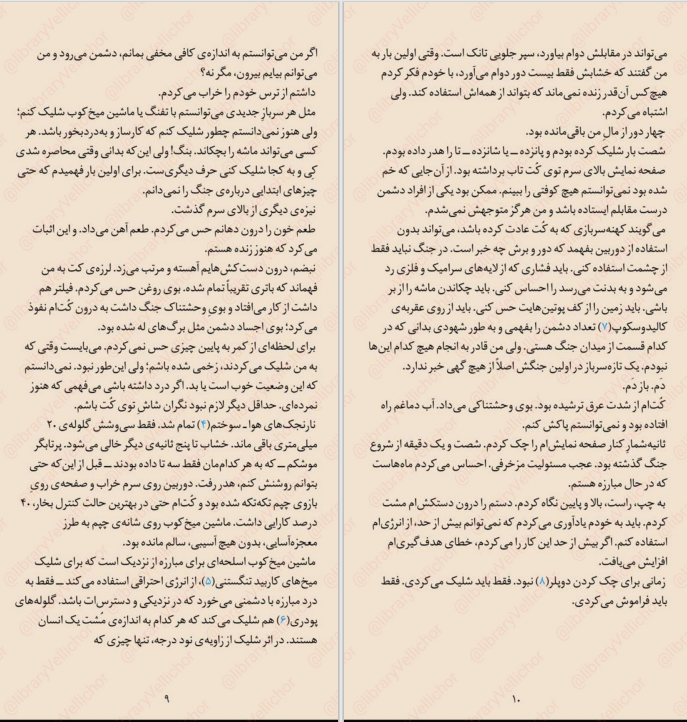 اگر من می‌توانستم به اندازه‌ی کافی مخفی بمانم، دشمن می‌رود و من
می‌توانم بیایم بیرون، مگر نه؟
داشتم از ترس خودم را خراب می‌کردم.
مثل هر سرباز جدیدی می‌توانستم با تفنگ یا ماشین میخ‌کوب شلیک کنم؛
ولی هنوز نمی‌دانستم چطور شلیک کنم که کارساز و به‌دردبخور باشد. هر
کسی می‌تواند ماشه را بچکاند. بنگ! ولی این‌که بدانی وقتی محاصره شدی
کِی و به کجا شلیک کنی حرف دیگری‌ست. برای اولین بار فهمیدم که حتی
چیزهای ابتدایی درباره‌ی جنگ را نمی‌دانم.
نیزه‌ی دیگری از بالای سرم گذشت.
طعم خون را درون دهانم حس می‌کردم. طعم آهن می‌داد. و این اثبات
می‌کرد که هنوز زنده هستم.
نبضم، درون دست‌کش‌هایم آهسته و مرتب می‌زد. لرزه‌ی کت به من
فهماند که باتری تقریباً تمام شده. بوی روغن حس می‌کردم. فیلتر هم
داشت از کار می‌افتاد و بوی وحشتناک جنگ داشت به درون کُت‌ام نفوذ
می‌کرد؛ بوی اجساد دشمن مثل برگ‌های له شده بود.
برای لحظه‌ای از کمر به پایین چیزی حس نمی‌کردم. می‌بایست وقتی که
به من شلیک می‌کردند، زخمی شده باشم؛ ولی این‌طور نبود. نمی‌دانستم
که این وضعیت خوب است یا بد. اگر درد داشته باشی می‌فهمی که هنوز
نمرده‌ای. حداقل دیگر لازم نبود نگران شاش توی کُت باشم.
نارنجک‌های هوا ـ سوختم(۴) تمام شد. فقط سی‌وشش گلوله‌ی ۲۰
میلی‌متری باقی ماند. خشاب تا پنج ثانیه‌ی دیگر خالی می‌شود. پرتابگر
موشکم ــ که به هر کدام‌مان فقط سه تا داده بودند ــ قبل از این‌که حتی
بتوانم روشنش کنم، هدر رفت. دوربین روی سرم خراب و صفحه‌ی رویِ
بازوی چپم تکه‌تکه شده بود و کُت‌ام حتی در بهترین حالت کنترل بخار، ۴۰
درصد کارایی داشت. ماشین میخ‌کوب روی شانه‌ی چپم به طرز
معجزه‌آسایی، بدون هیچ آسیبی، سالم مانده بود.
ماشین میخ‌کوب اسلحه‌ای برای مبارزه از نزدیک است که برای شلیک
میخ‌های کاربید تنگستنی(۵)، از انرژی احتراقی استفاده می‌کند ــ فقط به
درد مبارزه با دشمنی می‌خورد که در نزدیکی و دسترس‌ات باشد. گلوله‌های
پودری(۶) هم شلیک می‌کند که هر کدام به اندازه‌ی مُشت یک انسان
هستند. در اثر شلیک از زاویه‌ی نود درجه، تنها چیزی که
۹
می‌تواند در مقابلش دوام بیاورد، سپر جلویی تانک است. وقتی اولین بار به
من گفتند که خشابش فقط بیست دور دوام می‌آورد، با خودم فکر کردم
هیچ‌کس آن‌قدر زنده نمی‌ماند که بتواند از همه‌اش استفاده کند. ولی
اشتباه می‌کردم.
چهار دور از مالِ من باقی‌مانده بود.
شصت بار شلیک کرده بودم و پانزده ــ یا شانزده ــ تا را هدر داده بودم.
صفحه نمایش بالای سرم توی کُت تاب برداشته بود. از آن‌جایی که خم
شده بود نمی‌توانستم هیچ کوفتی را ببینم. ممکن بود یکی از افراد دشمن
درست مقابلم ایستاده باشد و من هرگز متوجهش نمی‌شدم.
می‌گویند کهنه‌سربازی که به کُت عادت کرده باشد، می‌تواند بدون
استفاده از دوربین بفهمد که دور و برش چه خبر است. در جنگ نباید فقط
از چشمت استفاده کنی. باید فشاری که از لایه‌های سرامیک و فلزی رد
می‌شود و به بدنت می‌رسد را احساس کنی. باید چکاندن ماشه را از بر
باشی. باید زمین را از کف پوتین‌هایت حس کنی. باید از روی عقربه‌ی
کالیدوسکوپ(۷) تعداد دشمن را بفهمی و به طور شهودی بدانی که در
کدام قسمت از میدان جنگ هستی. ولی من قادر به انجام هیچ کدام این‌ها
نبودم. یک تازه‌سرباز در اولین جنگش اصلاً از هیچ گهی خبر ندارد.
دَم. باز دَم.
کُت‌ام از شدت عرق ترشیده بود. بوی وحشتناکی می‌داد. آب دماغم راه
افتاده بود و نمی‌توانستم پاکش کنم.
ثانیه‌شمار کنار صفحه نمایش‌ام را چک کردم. شصت و یک دقیقه از شروع
جنگ گذشته بود. عجب مسئولیت مزخرفی. احساس می‌کردم ماه‌هاست
که در حال مبارزه هستم.
به چپ، راست، بالا و پایین نگاه کردم. دستم را درون دستکش‌ام مشت
کردم. باید به خودم یادآوری می‌کردم که نمی‌توانم بیش از حد، از انرژی‌ام
استفاده کنم. اگر بیش از حد این کار را می‌کردم، خطای هدف گیری‌ام
افزایش می‌یافت.
زمانی برای چک کردن دوپلر(۸) نبود. فقط باید شلیک می‌کردی. فقط
باید فراموش می‌کردی.
۱۰
@libraryVellichor